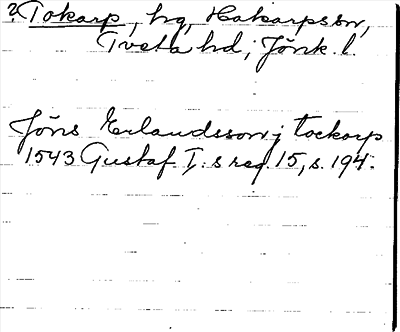 ? Tokarp, hg, Hakarps sn,
Tveta hd; Jönk. l.
Jöns Erlandsson j tockarp
1543 Gustaf I:s reg. 15, s. 194.